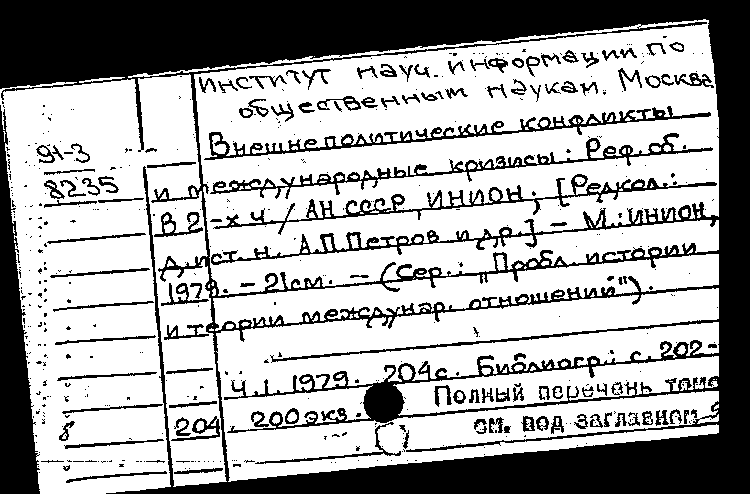 Институт науч. информации по
общественным наукам. Москва
Внешнеполитические конфликты
91-3
8235
и международные кризисы: Реф. сб.
В 2-х ч. / АН СССР, ИНИОН; [Редкол.:
д. ист. н. А.П.Петров и др.] – М.: ИНИОН,
1979. – 21см. – (Сер.: „Пробл. истории
и теории междунар. отношений").
Ч.1. 1979. 204с. Библиогр.: с. 202-
204. 200 экз.
Полный перечень томо
см. под заглавием